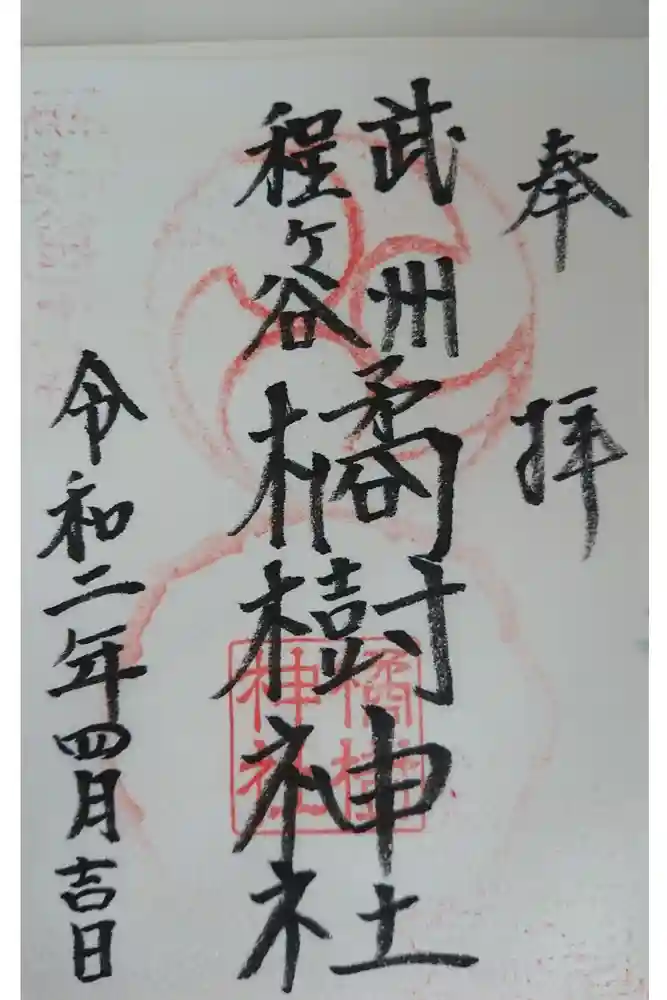 奉拝
武州
程ヶ谷
橘樹神社
橘樹
神社
令和二年四月吉日